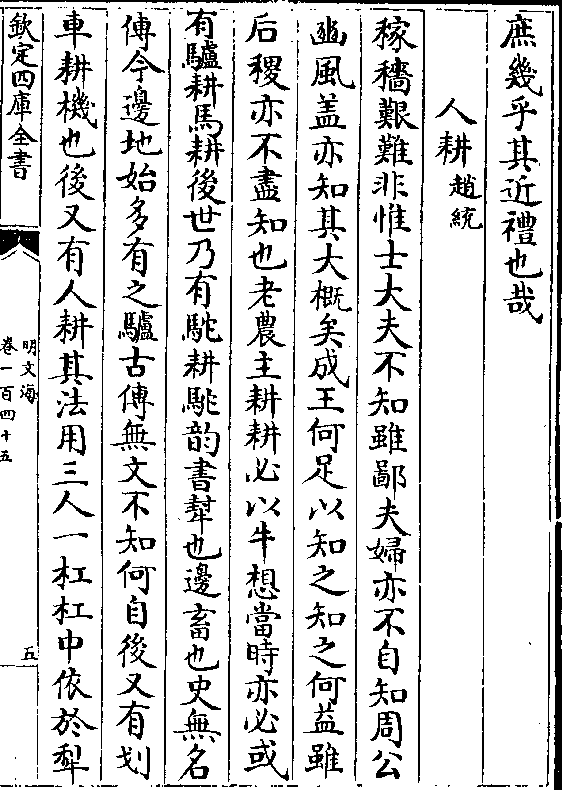 庶幾乎其近禮也哉
人耕 趙統
稼穡艱難非惟士大夫不知雖鄙夫婦亦不自知周公
豳風盖亦知其大概矣成王何足以知之知之何益雖
后稷亦不盡知也老農主耕耕必以牛想當時亦必或
有驢耕馬耕後世乃有駝耕駝韵書犎也邊畜也史無名
傳今邊地始多有之驢古傳無文不知何自後又有刬
車耕機也後又有人耕其法用三人一杠杠中依於犁
欽定四庫全書
明文海
卷一百四十五
五